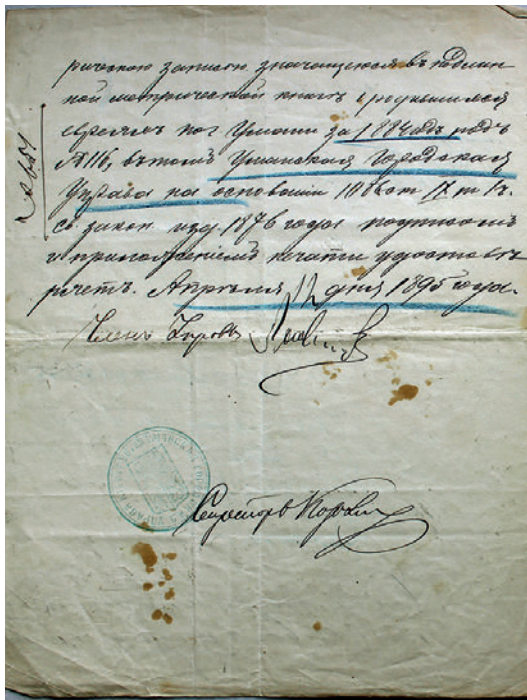 рическою записью значащеюся въ подлин
ной метрической книгѣ о родившихся
евреяхъ по г. Умани за 1884 годъ подъ
№ 116, въ томъ Уманская Городская
Управа на основании 1086 ст IX т. 1 ч.
св. закон. изд. 1876 года подписомъ
и приложениемъ печати удостовѣ
ряетъ. Апрѣля 12 дня 1895 года.
Членъ Управы
Секретарь